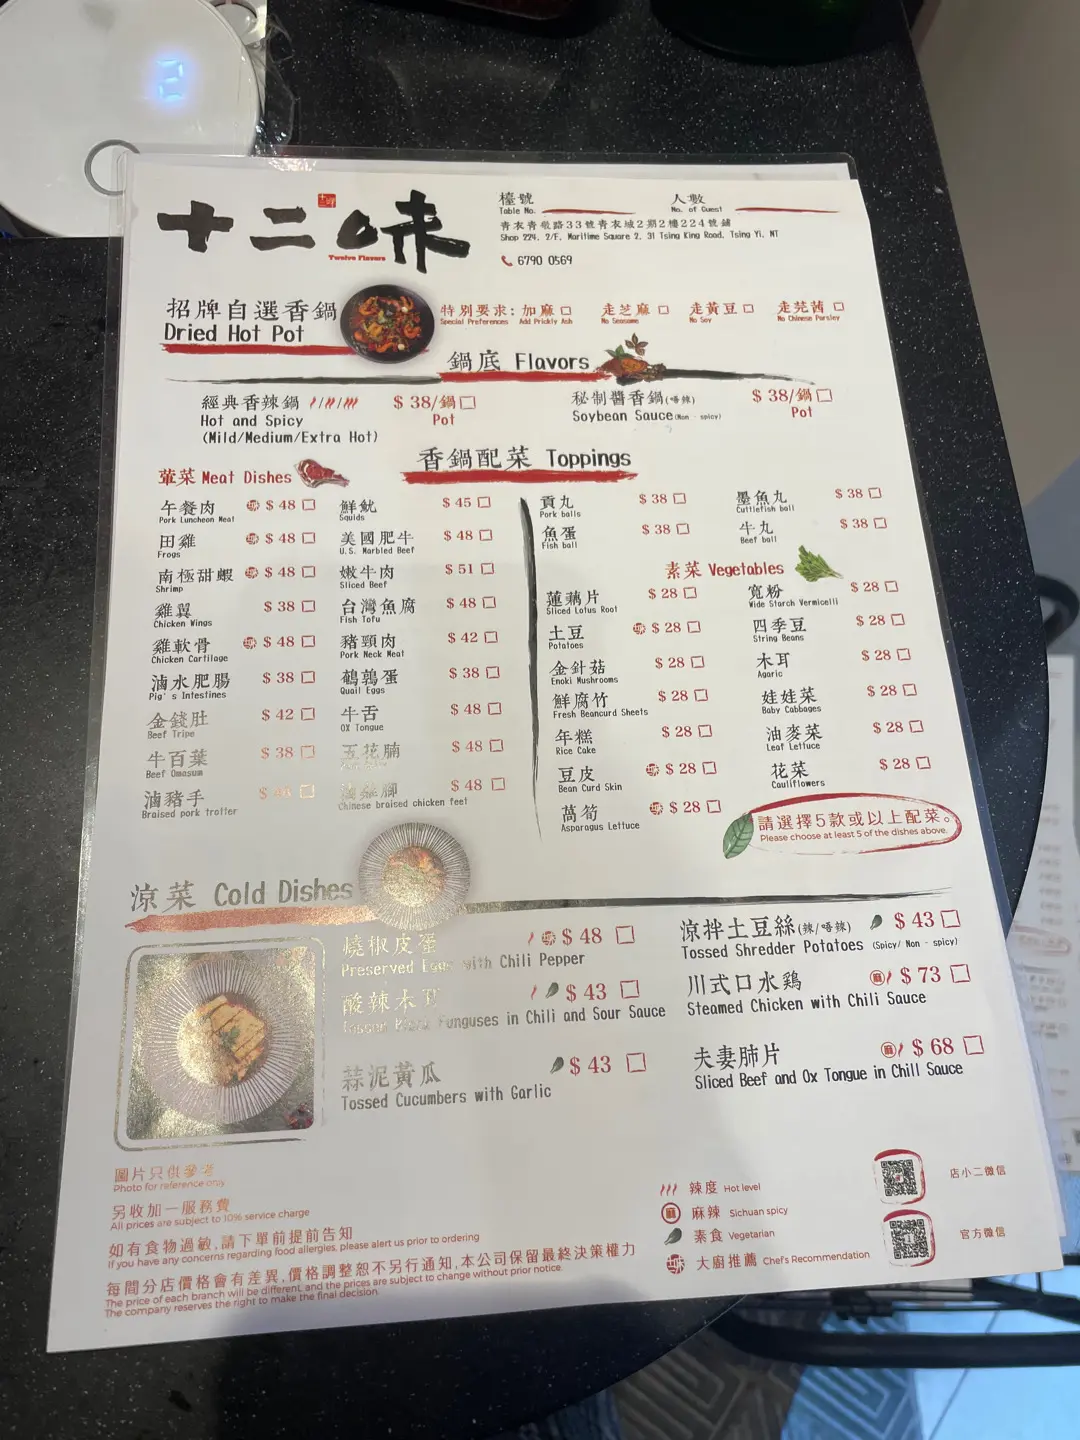 十二味
Twelve Flavors
檯號 人數
Table No. No. of Guest
青衣青敬路33號青衣城2期2樓224號鋪
Shop 224, 2/F, Maritime Square 2, 31 Tsing King Road, Tsing Yi, NT
6790 0569
招牌自選香鍋
Dried Hot Pot
特別要求: 加麻 走芝麻 走黃豆 走芫茜
Special Preferences Add Prickly Ash No Sesame No Soy No Chinese Parsley
鍋底 Flavors
經典香辣鍋 $ 38/鍋
Hot and Spicy Pot
(Mild/Medium/Extra Hot)
秘制醬香鍋(唔辣) $ 38/鍋
Soybean Sauce(Non - spicy) Pot
香鍋配菜 Toppings
葷菜 Meat Dishes
午餐肉 $ 48
Pork Luncheon Meat
田雞 $ 48
Frogs
南極甜蝦 $ 48
Shrimp
雞翼 $ 38
Chicken Wings
雞軟骨 $ 48
Chicken Cartilage
滷水肥腸 $ 38
Pig's Intestines
金錢肚 $ 42
Beef Tripe
牛百葉 $ 38
Beef Omasum
滷豬手
Braised pork trotter
鮮魷 $ 45
Squids
美國肥牛 $ 48
U.S. Marbled Beef
嫩牛肉 $ 51
Sliced Beef
台灣魚腐 $ 48
Fish Tofu
豬頸肉 $ 42
Pork Neck Meat
鵪鶉蛋 $ 38
Quail Eggs
牛舌 $ 48
OX Tongue
五花腩 $ 48
滷雞腳 $ 48
Chinese braised chicken feet
貢丸 $ 38
Pork balls
魚蛋 $ 38
Fish ball
墨魚丸 $ 38
Cuttlefish ball
牛丸 $ 38
Beef ball
素菜 Vegetables
蓮藕片 $ 28
Sliced Lotus Root
土豆 $ 28
Potatoes
金針菇 $ 28
Enoki Mushrooms
鮮腐竹 $ 28
Fresh Beancurd Sheets
年糕 $ 28
Rice Cake
豆皮 $ 28
Bean Curd Skin
萵筍 $ 28
Asparagus Lettuce
寬粉 $ 28
Wide Starch Vermicelli
四季豆 $ 28
String Beans
木耳 $ 28
Agaric
娃娃菜 $ 28
Baby Cabbages
油麥菜 $ 28
Leaf Lettuce
花菜 $ 28
Cauliflowers
請選擇5款或以上配菜。
Please choose at least 5 of the dishes above.
涼菜 Cold Dishes
燒椒皮蛋 $ 48
Preserved Eggs with Chili Pepper
酸辣木耳 $ 43
Funguses in Chili and Sour Sauce
蒜泥黃瓜 $ 43
Tossed Cucumbers with Garlic
涼拌土豆絲(辣/唔辣) $ 43
Tossed Shredder Potatoes (Spicy/ Non - spicy)
川式口水鶏 麻 $ 73
Steamed Chicken with Chili Sauce
夫妻肺片 麻 $ 68
Sliced Beef and Ox Tongue in Chill Sauce
圖片只供參考
Photo for reference only
另收加一服務費
All prices are subject to 10% service charge
如有食物過敏,請下單前提前告知
If you have any concerns regarding food allergies, please alert us prior to ordering
每間分店價格會有差異,價格調整恕不另行通知,本公司保留最終決策權力
The price of each branch will be different, and the prices are subject to change without prior notice.
The company reserves the right to make the final decision.
辣度 Hot level
麻 麻辣 Sichuan spicy
素食 Vegetarian
大廚推薦 Chef's Recommendation
店小二微信
官方微信